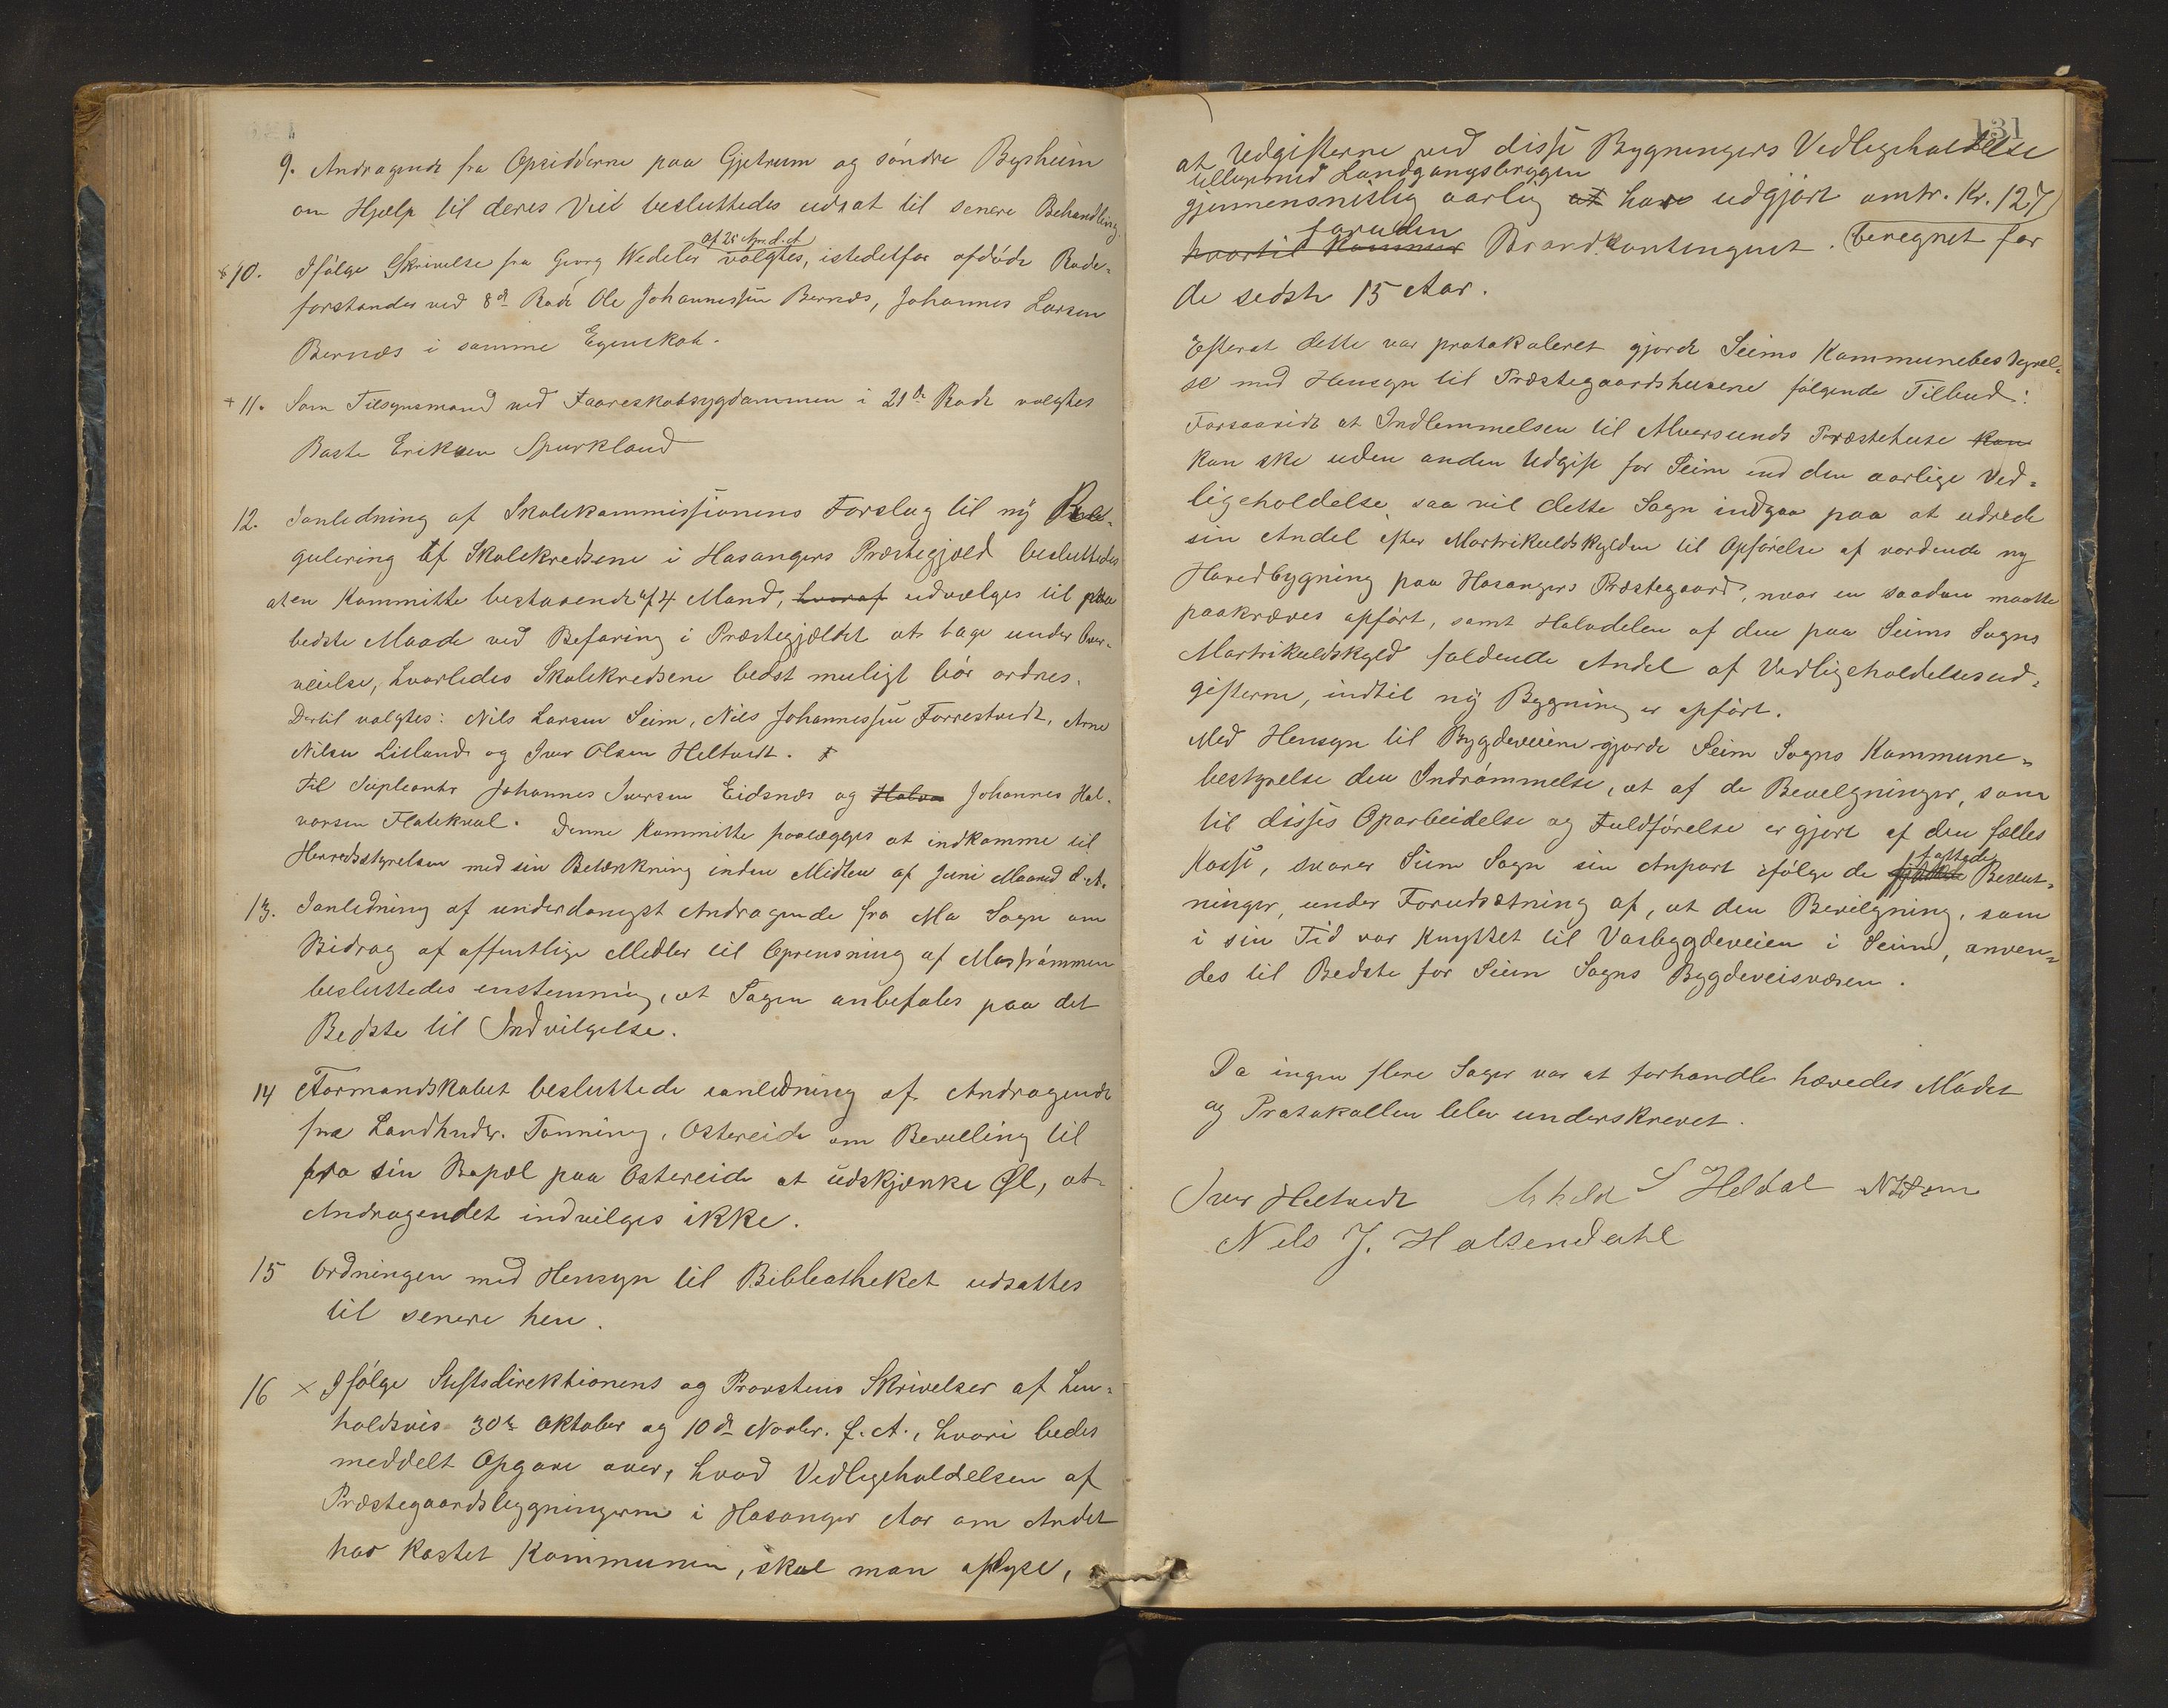 9. Andragende fra Opsidderne paa Gjetrum og søndre Bysheim
om Hjælp til deres Vei besluttedes udsat til senere Behandling.
10. Ifølge Skrivelse fra Georg Wedeler af 25 Apr. d. A. valgtes, istedetfor afdøde Rode-
forstander ved 8de Rode Ole Johannessen Bernæs, Johannes Larsen
Bernæs i samme Egenskab.
+ 11. Som Tilsynsmand ved Faareskabsygdommen i 21de Rode valgtes
Baste Eriksen Spurkland
12. Ianledning af Skolekommissionens Forslag til ny Re-
gulering af Skolekredsene i Hosangers Præstegjæld besluttedes
at en Kommitte bestaaende af 4 Mand, hvoraf udvælges til paa
bedste Maade ved Befaring i Præstegjældet at tage under Over-
veielse, hvorledes Skolekredsene bedst muligt bør ordnes.
Dertil valgtes: Nils Larsen Seim, Nils Johannessen Forrestvedt, Arne
Nilsen Lilland og Iver Olsen Heltvedt.
Til Supleanter Johannes Iversen Eidsnæs og Halvo Johannes Hal-
vorsen Flatekval. Denne Kommitte paalægges at indkomme til
Herredsstyrelsen med sin Betænkning inden Midten af Juni Maaned d. A.
13. Ianledning af underdanigst Andragende fra Mo Sogn om
Bidrag af offentlige Midler til Oprensning af Mostrømmen
besluttedes enstemmig, at Sagen anbefales paa det
Bedste til Indvilgelse.
14 Formandskabet besluttede ianledning af Andragende
fra Landhndlr. Tonning, Ostereide om Bevilling til
fra sin Bopæl paa Ostereide at udskjænke Øl, at
Andragendet indvilges ikke.
15 Ordningen med Hensyn til Bibliotheket udsattes
til senere hen.
16 × Ifølge Stiftsdirektionens og Provstens Skrivelser af hen-
holdsvis 30te Oktober og 10de Novbr. f. A., hvori bedes
meddelt Opgave over, hvad Vedligeholdelsen af
Præstegaardsbygningerne i Hosanger Aar om Andet
har kostet Kommunen, skal man oplyse,
131
at Udgifterne ved disse Bygningers Vedligeholdelse
tilligemed Landgangsbryggen
gjennemsnitlig aarlig at have udgjort omtr. Kr. 127
foruden
hvortil kommer Brandkontingent. (beregnet for
de sidste 15 Aar.
Efterat dette var protokoleret gjorde Seims Kommunebestyrel-
se med Hensyn til Præstegaardshusene følgende Tilbud:
Forsaavidt at Indlemmelsen til Alversunds Præstehuse kan
kan ske uden anden Udgift for Seim end den aarlige Ved-
ligeholdelse, saa vil dette Sogn indgaa paa at udrede
sin Andel efter Martrikulskylden til Opførelse af vordende ny
Hovedbygning paa Hosangers Præstegaard, naar en saadan maatte
paakræves opført, samt Halvdelen af den paa Seims Sogns
Martrikulskyld faldende Andel af Vedligeholdelsesud-
gifterne, indtil ny Bygning er opført.
Med Hensyn til Bygdeveiene gjorde Seim Sogns Kommune-
bestyrelse den Indrømmelse, at af de Bevilgninger, som
til disses Oparbeidelse og Fuldførelse er gjort af den fælles
Kasse, svarer Seim Sogn sin Anpart ifølge de fattede Beslut-
ninger, under Forudsætning af, at den Bevilgning, som
i sin Tid var knyttet til Vasbygdeveien i Seim, anven-
des til Bedste for Seim Sogns Bygdeveisvæsen.
Da ingen flere Sager var at forhandle hævedes Mødet
og Protokollen blev underskrevet.
Iver Heltvedt S Heldal
Nils J. Halsendahl